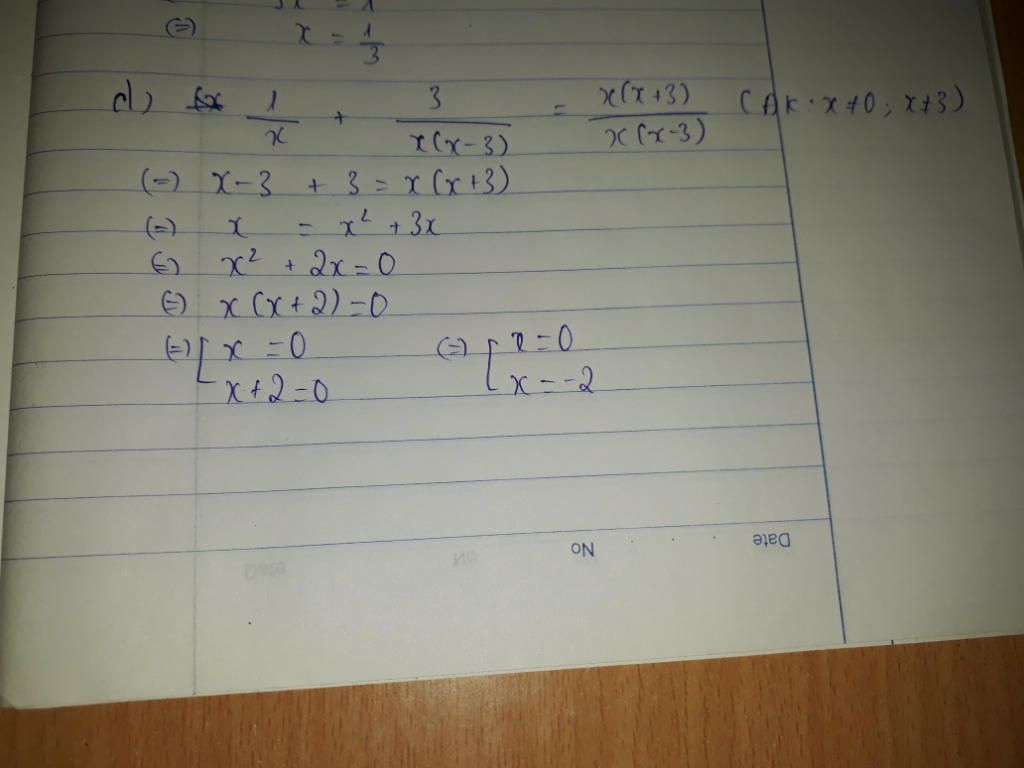 3x = 1
(=) x = 1/3
d) 1/x + 3/x(x-3) = x(x+3)/x(x-3) (ĐK: x≠0; x≠3)
(=) x-3 + 3 = x(x+3)
(=) x = x² + 3x
(=) x² + 2x = 0
(=) x(x+2) = 0
(=) [ x = 0 (=) [ x = 0
x+2 = 0 x = -2
No . . . . Date
Date No